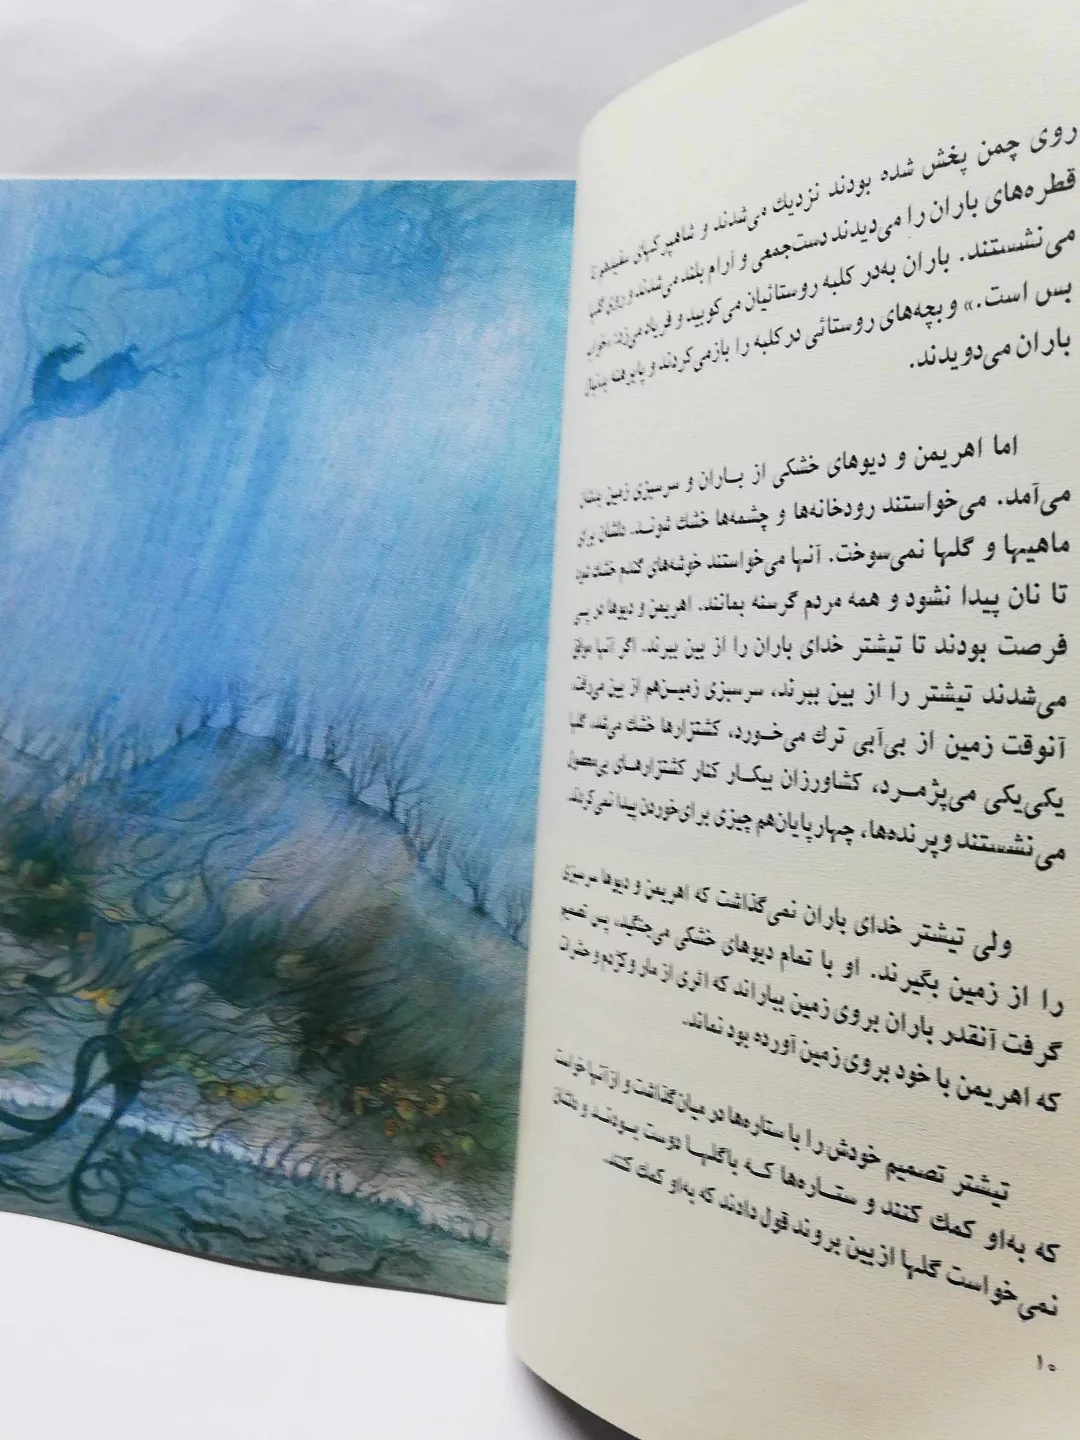 روی چمن پخش شده بودند نزدیك می‌شدند و شاهپرکهای سفیدهم تا
قطره‌های باران را می‌دیدند دست‌جمعی و آرام بلند می‌شدند و روی گلها
می‌نشستند. باران به‌در کلبه روستائیان می‌کوبید و فریاد می‌زد: «خواب
بس است.» و بچه‌های روستائی درکلبه را بازمی‌کردند و پابرهنه بدنبال
باران می‌دویدند.
اما اهریمن و دیوهای خشکی از بـاران و سرسبزی زمین بدشان
می‌آمد. می‌خواستند رودخانه‌ها و چشمه‌ها خشك شونـد. دلشان برای
ماهیها و گلها نمی‌سوخت. آنها می‌خواستند خوشه‌های گندم خشك شود
تا نان پیدا نشود و همه مردم گرسنه بمانند. اهریمن و دیوها در پـی
فرصت بودند تا تیشتر خدای باران را از بین ببرند. اگر آنها موفق
می‌شدند تیشتر را از بین ببرند، سرسبزی زمیـن‌هم از بین می‌رفت.
آنوقت زمین از بی‌آبی ترك می‌خـورد، کشتزارها خشك می‌شد، گلها
یکی‌یکی می‌پژمـرد، کشاورزان بیکـار کنار کشتزارهـای بی‌محصول
می‌نشستند و پرنده‌ها، چهارپایان‌هم چیزی برای‌خوردن پیدا نمی‌کردند.
ولی تیشتر خدای باران نمی‌گذاشت که اهریمن و دیوها سرسبزی
را از زمین بگیرند. او با تمام دیوهای خشکی می‌جنگید، پس تصمیم
گرفت آنقدر باران بروی زمین بباراند که اثری از مار و کژدم و حشرات
که اهریمن با خود بروی زمین آورده بود نماند.
تیشتر تصمیم خودش را با ستاره‌ها در میان‌گذاشت و از آنها خواست
که به‌او کمك کنند و ستـاره‌ها کـه باگلهـا دوست بـودنـد و دلشان
نمی‌خواست گلها از بین بروند قول دادند که به‌او کمك کنند.
۱۰